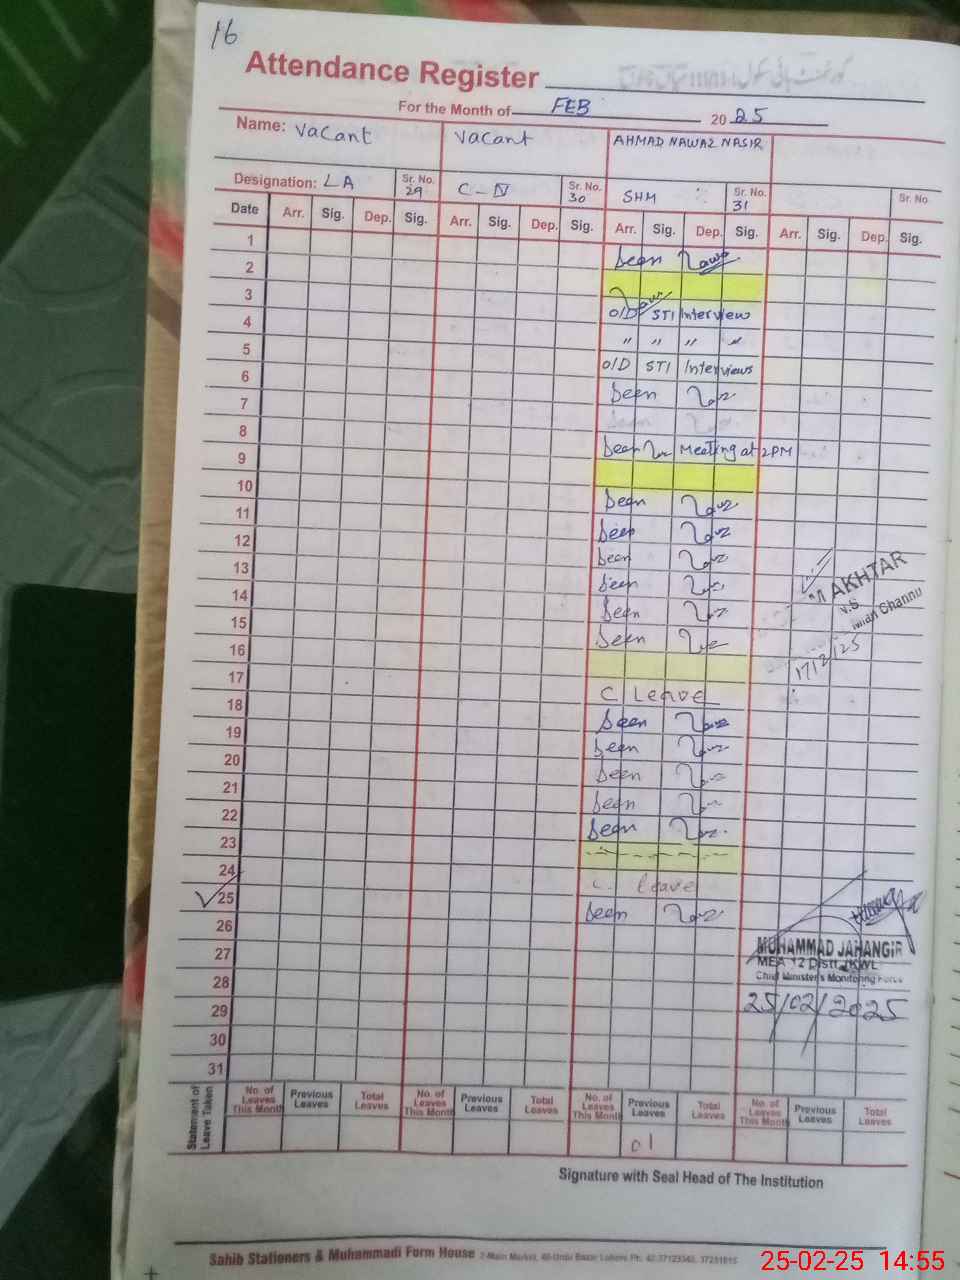 16
Attendance Register
For the Month of FEB 2025
Name: Vacant Vacant AHMAD NAWAZ NASIR
Designation: LA Sr. No. 29 C-IV Sr. No. 30 SHM Sr. No. 31 Sr. No.
Date Arr. Sig. Dep. Sig. Arr. Sig. Dep. Sig. Arr. Sig. Dep. Sig. Arr. Sig. Dep. Sig.
1 Seen
2
3 O/D STI Interview
4 " " " "
5 O/D STI Interviews
6 Seen
7 Seen
8 Seen Meeting at 2PM
9
10 Seen
11 Seen
12 Seen
13 Seen
14 Seen
15 Seen
16
17 C Leave
18 Seen
19 Seen
20 Seen
21 Seen
22 Seen
23
24 C. leave
25 Seen
26
27
28
29
30
31
AKHTAR
Mian Channu
17/2/25
MUHAMMAD JAHANGIR
MEA 12 Distt. KWL
Chief Minister's Monitoring Force
25/02/2025
Statement of Leave Taken
No. of Leaves This Month Previous Leaves Total Leaves No. of Leaves This Month Previous Leaves Total Leaves No. of Leaves This Month Previous Leaves Total Leaves No. of Leaves This Month Previous Leaves Total Leaves
01
Signature with Seal Head of The Institution
Sahib Stationers & Muhammadi Form House
25-02-25 14:55